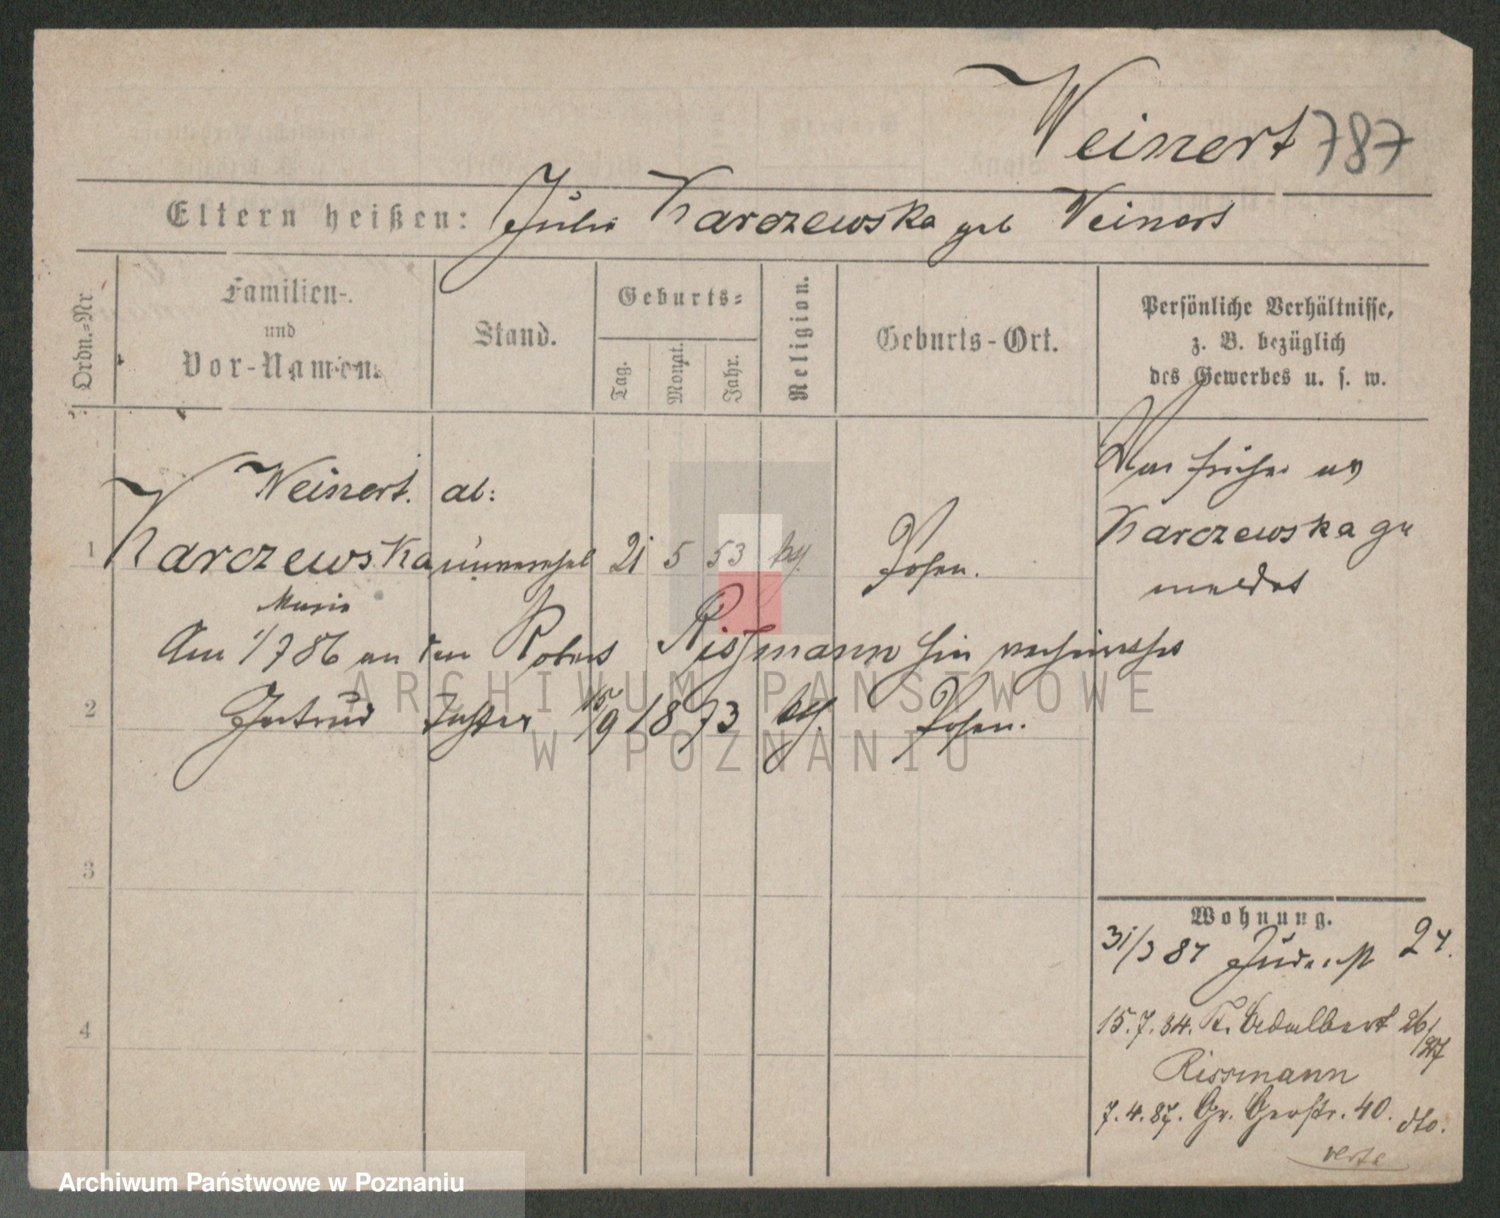 Weinert 787
Eltern heißen: Julie Karczewska geb Weinert
Ordn.=Nr
Familien-
und
Vor-Namen.
Stand.
Geburts=
Tag.
Monat.
Jahr.
Religion.
Geburts-Ort.
Persönliche Verhältnisse,
z. B. bezüglich
des Gewerbes u. s. w.
Weinert. al:
1 Karczewska unverehel 21 5 53 kt. Posen.
Marie
War früher als
Karczewska ge
meldet
Am 1/7 86 an den Robert Rissmann hier verheirathet
2 Gertrud Tochter 15/9 1873 kt. Posen.
3
4
Wohnung.
31/3 81 Judenstr 24.
15.7.84. St. Adalbert 26/27
Rissmann
7.4.87. Gr. Gerbstr. 40. dto.
verte
ARCHIWUM PAŃSTWOWE
W POZNANIU
Archiwum Państwowe w Poznaniu